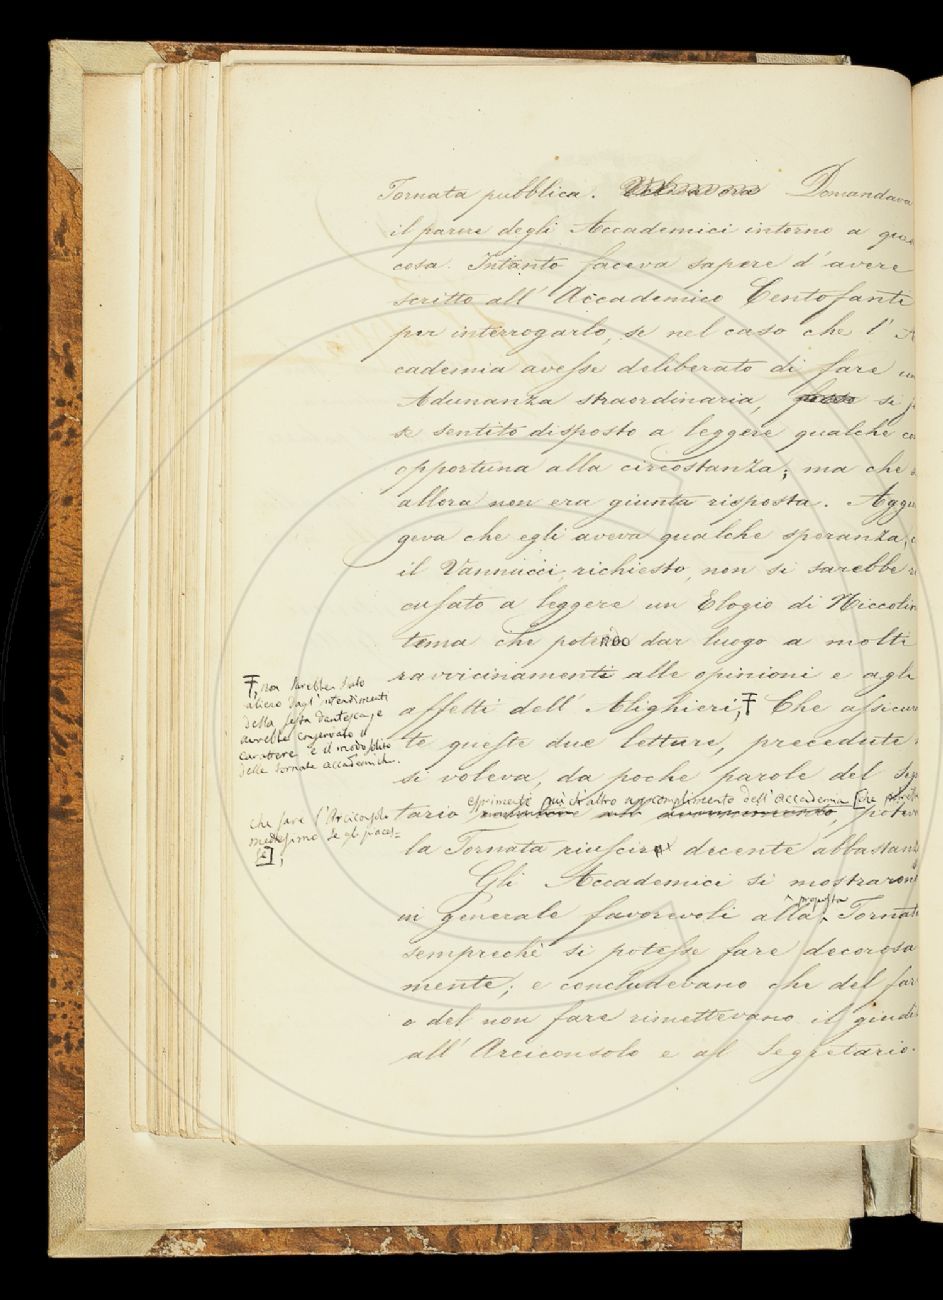 Tornata pubblica. Domandava
il parere degli Accademici intorno a
cosa. Intanto faceva sapere d'avere
scritto all'Accademico Centofanti
per interrogarlo, se nel caso che l'A
cademia avesse deliberato di fare un
Adunanza straordinaria, si
se sentito disposto a leggere qualche
opportuna alla circostanza; ma che
allora non era giunta risposta. Aggiu
geva che egli aveva qualche speranza,
il Vannucci, richiesto, non si sarebbe
cusato a leggere un Elogio di Niccolin
tema che potendo dar luogo a molti
ravvicinamenti alle opinioni e agli
affetti dell'Alighieri, Ŧ Che assicura
te queste due letture, precedute
si voleva, da poche parole del Seg
esprimenti più ch'altro un complimento dell'Accademia [che
tario , poteva
la Tornata riuscire decente abbastanza
Gli Accademici si mostraron
proposta
in generale favorevoli alla Tornata
sempreché si potesse fare decorosa
mente; e concludevano che del far
o del non fare rimettevano il giudi
all'Arciconsolo e al Segretario.
Ŧ, non sarebbe stato
alieno dagl'intendimenti
della festa dantesca, e
avrebbe conservato il
carattere e il modo solito
delle tornate accademiche.
che fare l'Arciconsolo
medesimo se gli piaces=
se],